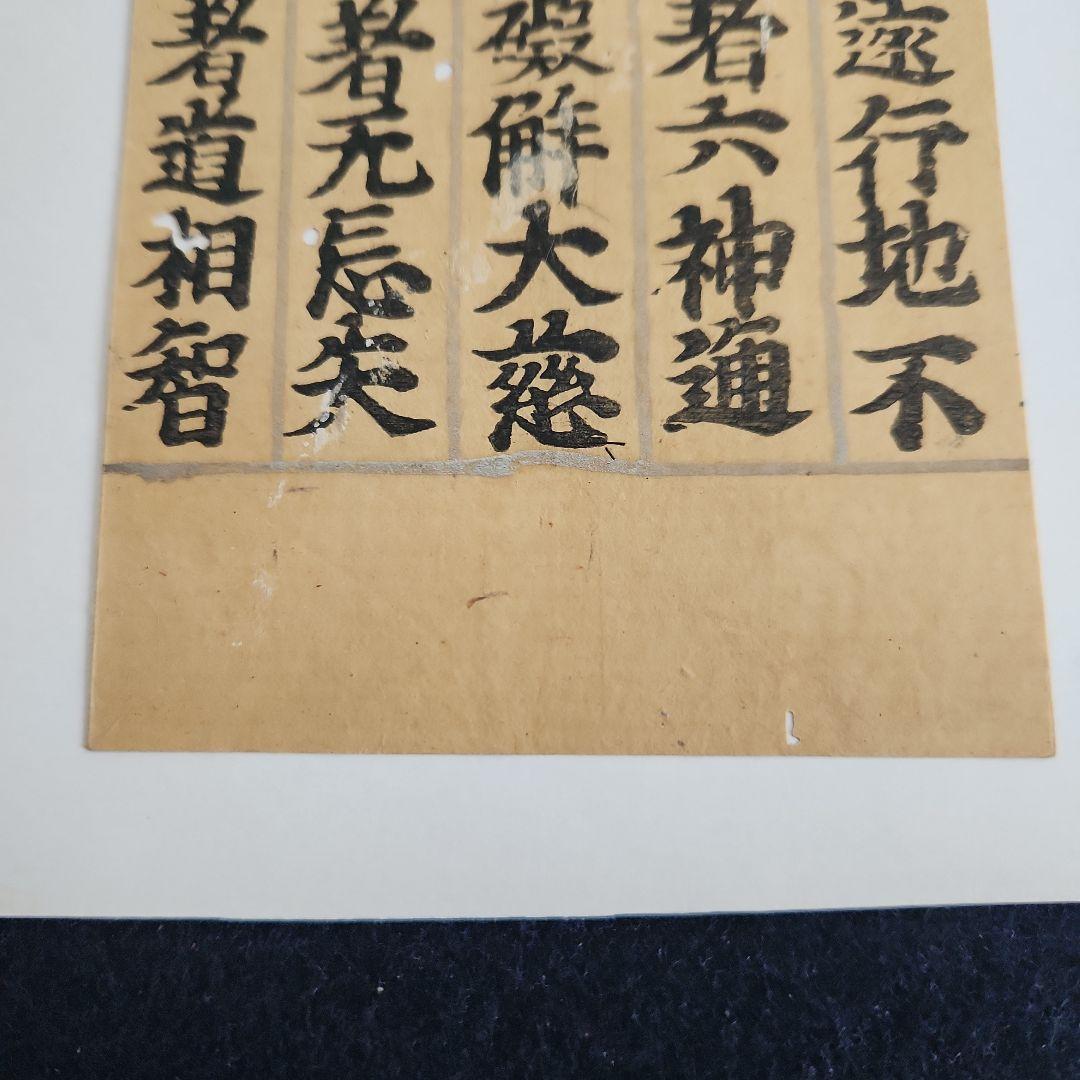 遠行地不
著六神通
礙解大慈
著无忘失
著道相智